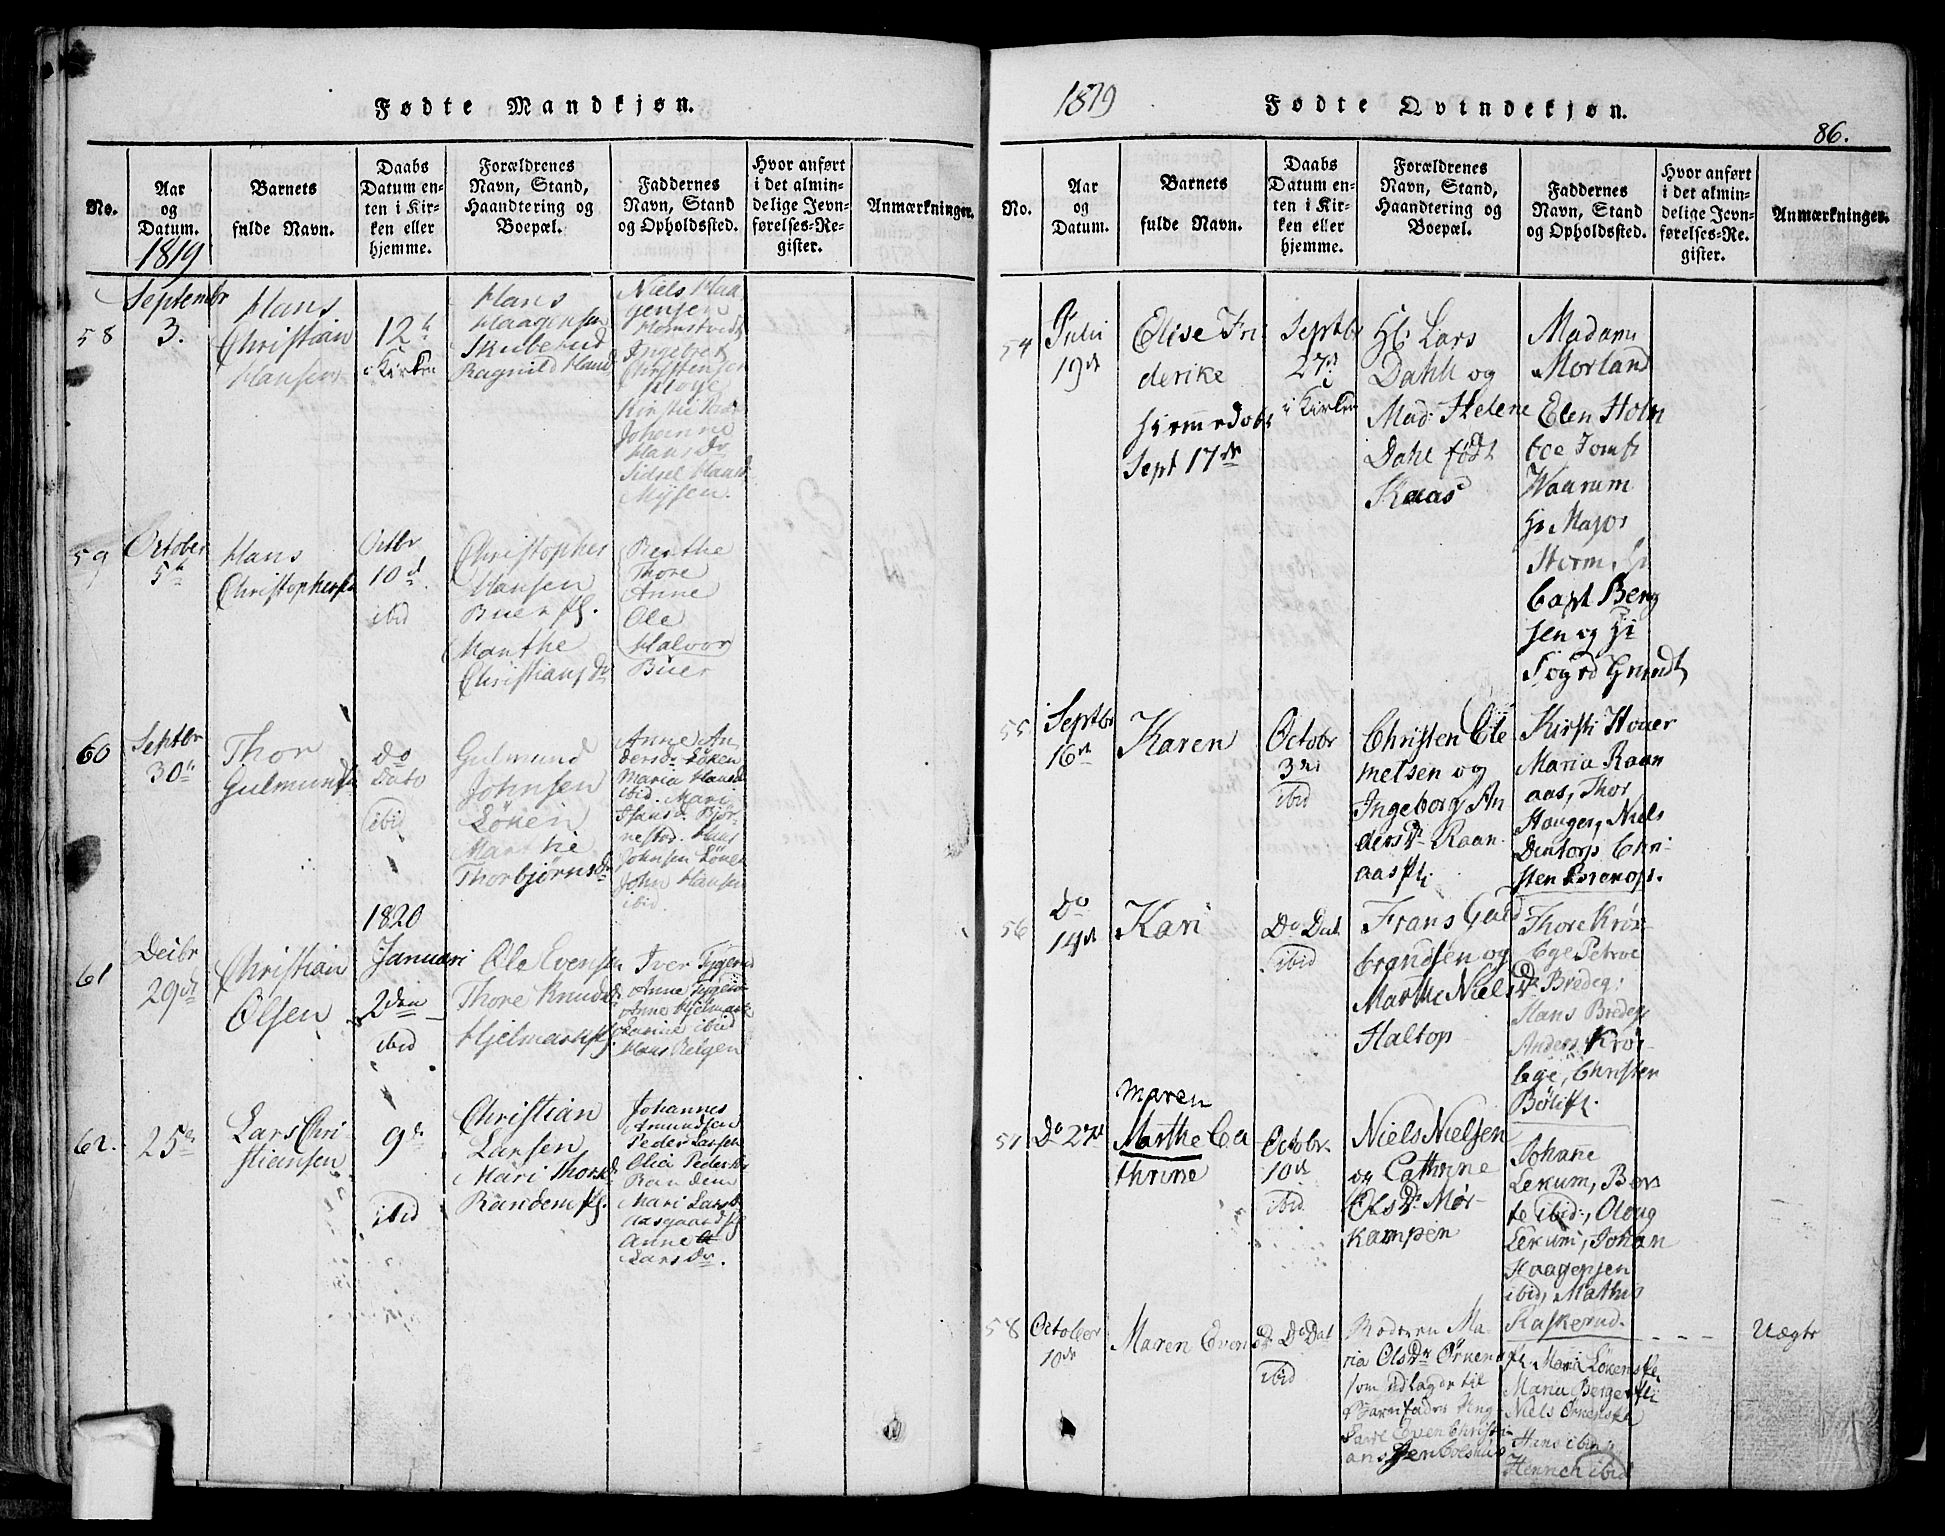 Fødte Mandkjøn.
No.
Aar
og
Datum.
Barnets
fulde Navn.
Daabs
Datum en-
ten i Kir-
ken eller
hjemme.
Forældrenes
Navn, Stand,
Haandtering og
Boepæl.
Faddernes
Navn, Stand
og Opholdssted.
Hvor anført
i det almin-
delige Jevn-
førelses-Re-
gister.
Anmærkninger.
1819
58
Septembr
3.
Hans
Christian
Hansen
12
i Kirken
Hans
Haagensen
Skuberud
Ragnild Hansd
Niels Haa
gensen
Homstvedt
Ingebret
Christensen
Kirstie
Johanne
Hans Dr
Sidsel Hansd
Mysen.
59
October
5
Hans
Christophersen
Octbr
10d
ibid
Christopher
Hansen
Buer pl.
Marthe
Christians Dr
Berthe
Thore
Anne
Ole
Halvor
Buer
60
Septbr
30
Thor
Gulmunds
Do
Dato
ibid
Gulmund
Johnsen
Löken
Marthe
Thorbjørns Dr
Anne An
dersd. Löken
Maria Hansd
ibid. Mari
Hansd. Bjør
nestad. Hans
Johnsen Löken
John Hansen
ibid.
61
Decbr
29de
Christian
Olsen
1820
Januari
2den
ibid
Ole Evensen
Thore Knudsd
Hjelmark pl.
Iver
Anne
Anne Hjelmark
ibid
Hans
62.
25
Lars Chri-
stiansen
9
ibid
Christian
Larsen
Mari Thorsd
Randem pl.
Johannes
Amundsen
Peder Larsen
Olia Peders
Randem
Mari Larsd
Aasgaard
Anne
Lars Dr.
1819
Fødte Qvindekjøn.
86.
No.
Aar
og
Datum.
Barnets
fulde Navn.
Daabs
Datum en-
ten i Kir-
ken eller
hjemme.
Forældrenes
Navn, Stand,
Haandtering og
Boepæl.
Faddernes
Navn, Stand
og Opholdssted.
Hvor anført
i det almin-
delige Jevn-
førelses-Re-
gister.
Anmærkninger.
54
Julii
19de
Elise Fri
derike
Hjemmedøbt
Sept 17de
Septbr
27
i Kirken
Hr. Lars
Dahl og
Mad: Helene
Dahl født
Kaas
Madam
Morland
Elen Holm
boe Jomfr
Waarum
Hr Major
Storm, Hr
Capt Berg
sen og Hr
Grundt
55
Septbr
16de
Karen
Octobr
3
ibid
Christen Cle
metsen og
Ingeborg An
ders Dr Raan
aas pl.
Kirsti Houer
Maria Raan
aas, Thor
Hauger, Niels
Dintorp Chri-
sten
56
Do
14de
Kari
Do Dat
ibid
Frans Guld
brandsen og
Marthe Niels Dr
Haltop
Thore Krös-
bye Petroe
Bredeg:
Hans Bredeg
Anders Krös-
bye, Christen
57
Do 27de
Maren
Marthe Ca
thrine
Octobr
10de
ibid
Niels Nielsen
og Cathrine
Ols Dr Mør-
kampen
Johane
Lekum, Ber
te ibid., Oloug
Lekum, Johan
Haagensen
ibid, Mathis
Kaskerud.
58
October
10de
Maren Evens
Dr
Do Dat
ibid
Moderen Ma-
ria Ols Dr Örnen
som udlagde til
Barnefader Ung-
karl Even Christi-
ansen
pl. Mari Lökens pl.
Maria Berger pl.
Niels Örnens pl
Hans ibid
Henrich ibid
Uægte